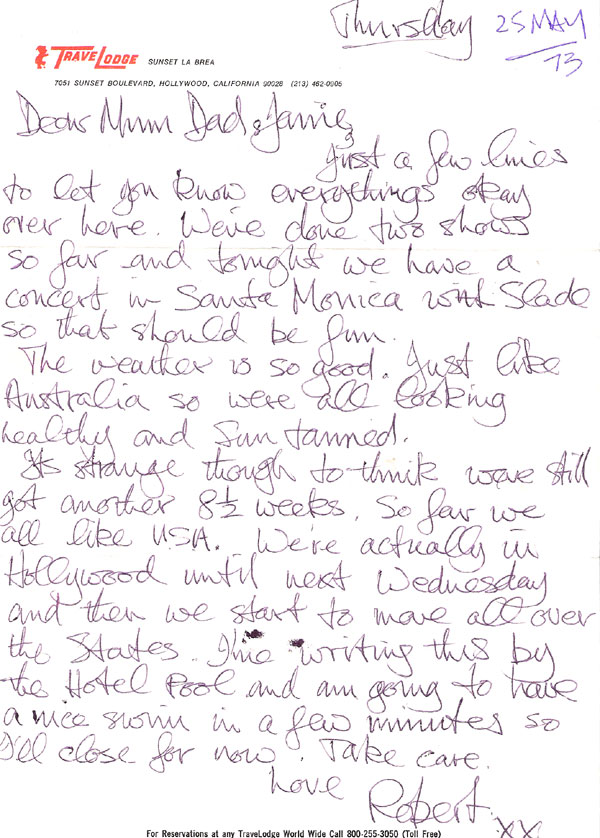 Thursday 25 MAY
73
TRAVELODGE SUNSET LA BREA
7051 SUNSET BOULEVARD, HOLLYWOOD, CALIFORNIA 90028 (213) 462-0905
Dear Mum Dad & Jamie,
Just a few lines
to let you know everythings okay
over here. We've done two shows
so far and tonight we have a
concert in Santa Monica with Slade
so that should be fun.
The weather is so good. Just like
Australia so were all looking
healthy and Sun tanned.
Its strange though to think weve still
got another 8½ weeks. So far we
all like USA. We're actually in
Hollywood until next Wednesday
and then we start to move all over
the States. I'me writing this by
the Hotel Pool and am going to have
a nice swim in a few minutes so
I'll close for now. Take care.
Love
Robert.
XX
For Reservations at any TraveLodge World Wide Call 800-255-3050 (Toll Free)